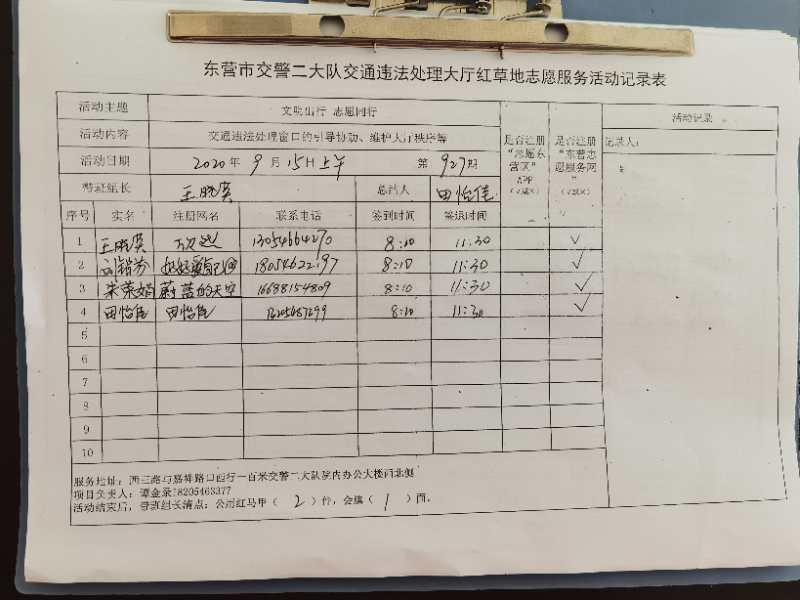 东营市交警二大队交通违法处理大厅红草地志愿服务活动记录表
活动主题 文明出行 志愿同行
活动内容 交通违法处理窗口的引导协助、维护大厅秩序等
活动日期 2020年9月15日上午 第927期
带班组长 王晓英 总召人 田怡佳
是否注册“志愿东营区”APP（√或×）
是否注册“东营志愿服务网”（√或×）
活动记录
记录人：
序号 实名 注册网名 联系电话 签到时间 签退时间
1 王晓英 13054664270 8:10 11:30 √
2 18054622197 8:10 11:30 √
3 朱荣娟 蔚蓝的天空 16688154809 8:10 11:30 √
4 田怡佳 田怡佳 8:10 11:30 √
5
6
7
8
9
10
服务地址：西三路与嘉祥路口西行一百米交警二大队院内办公大楼西北侧
项目负责人：谭金录18205463377
活动结束后，带班组长清点：公用红马甲（ 2 ）件，会旗（ 1 ）面。